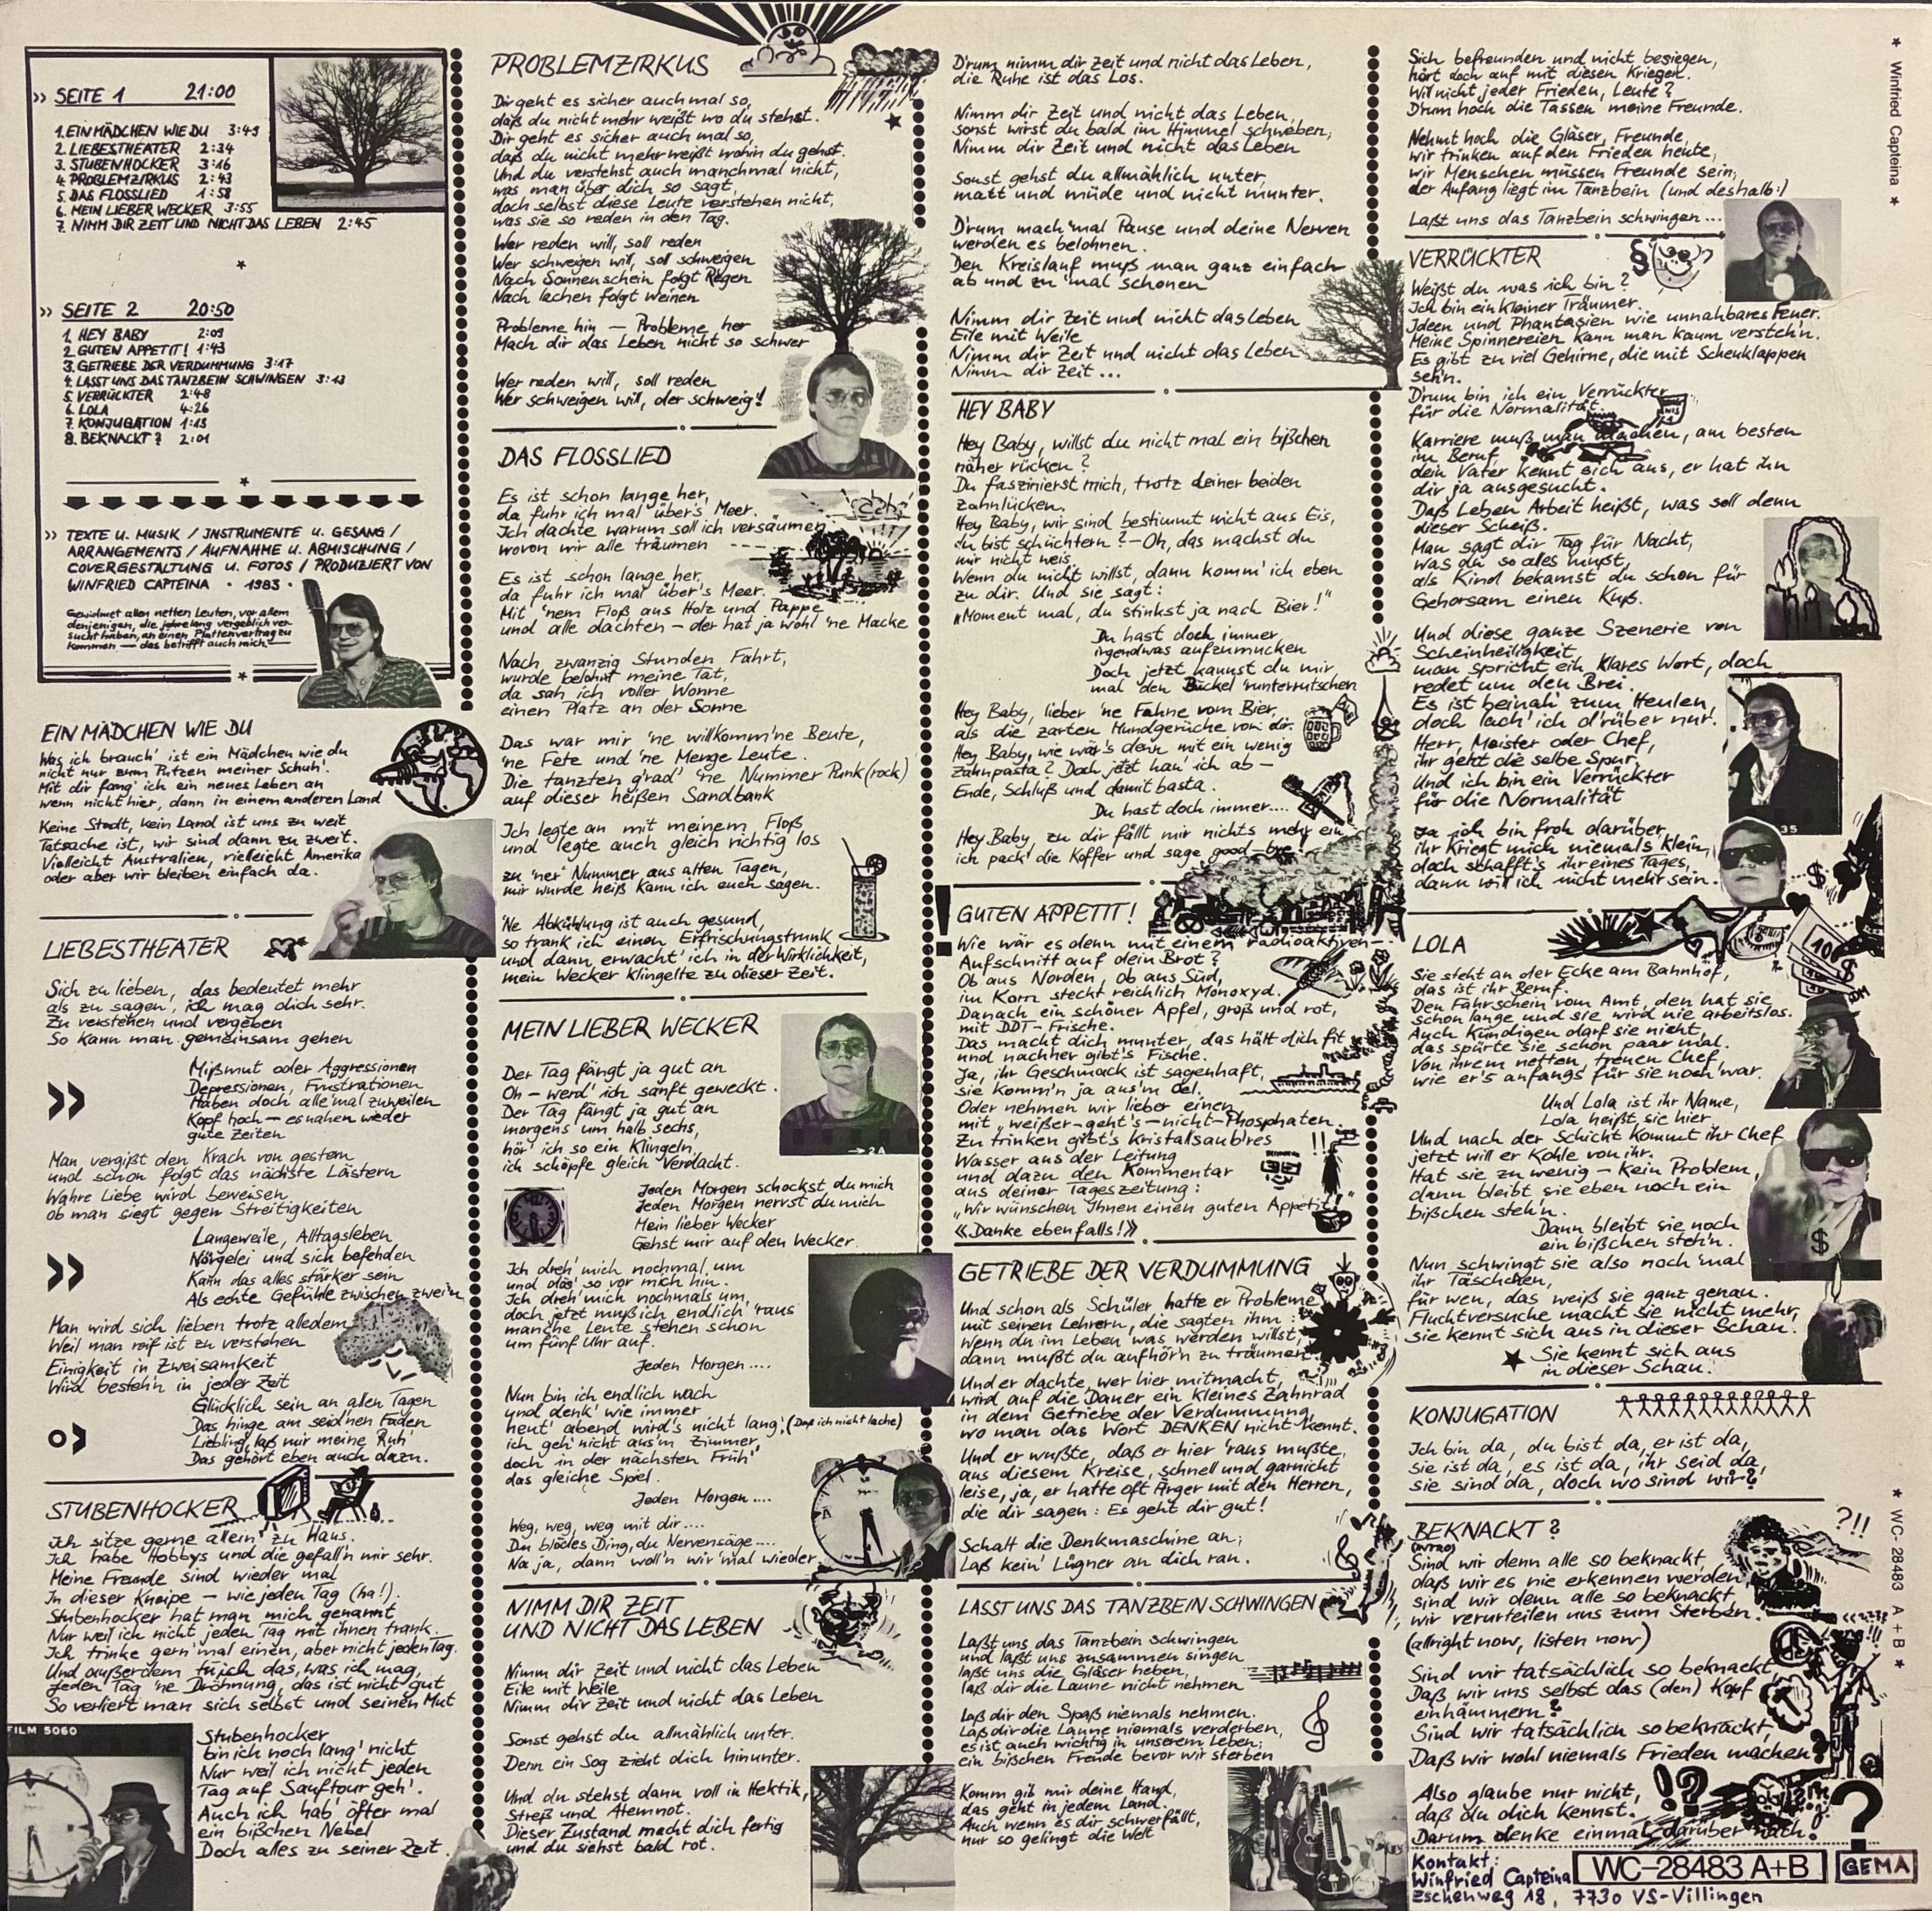 » SEITE 1 21:00
1. EIN MÄDCHEN WIE DU 3:49
2. LIEBESTHEATER 2:34
3. STUBENHOCKER 3:16
4. PROBLEMZIRKUS 2:43
5. DAS FLOSSLIED 1:58
6. MEIN LIEBER WECKER 3:55
7. NIMM DIR ZEIT UND NICHT DAS LEBEN 2:45
» SEITE 2 20:50
1. HEY BABY 2:09
2. GUTEN APPETIT! 1:43
3. GETRIEBE DER VERDUMMUNG 3:17
4. LASST UNS DAS TANZBEIN SCHWINGEN 3:13
5. VERRÜCKTER 2:48
6. LOLA 4:26
7. KONJUGATION 1:13
8. BEKNACKT? 2:01
» TEXTE U. MUSIK / INSTRUMENTE U. GESANG /
ARRANGEMENTS / AUFNAHME U. ABMISCHUNG /
COVERGESTALTUNG U. FOTOS / PRODUZIERT VON
WINFRIED CAPTEINA · 1983 ·
Gewidmet allen netten Leuten, vor allem
denjenigen, die jahrelang vergeblich ver-
sucht haben, an einen Plattenvertrag zu
kommen — das betrifft auch mich.
EIN MÄDCHEN WIE DU
Was ich brauch' ist ein Mädchen wie du
nicht nur zum Putzen meiner Schuh'.
Mit dir fang' ich ein neues Leben an
wenn nicht hier, dann in einem anderen Land
Keine Stadt, kein Land ist uns zu weit
Tatsache ist, wir sind dann zu zweit.
Vielleicht Australien, vielleicht Amerika
oder aber wir bleiben einfach da.
LIEBESTHEATER
Sich zu lieben, das bedeutet mehr
als zu sagen, ich mag dich sehr.
Zu verstehen und vergeben
So kann man gemeinsam gehen
» Mißmut oder Aggressionen
Depressionen, Frustrationen
Haben doch alle 'mal zuweilen
Kopf hoch — es nahen wieder
gute Zeiten
Man vergißt den Krach von gestern
und schon folgt das nächste Lästern
Wahre Liebe wird beweisen
ob man siegt gegen Streitigkeiten
» Langeweile, Alltagsleben
Nörgelei und sich befehden
Kann das alles stärker sein
Als echte Gefühle zwischen zwei'n
Man wird sich lieben trotz alledem
Weil man reif ist zu verstehen
Einigkeit in Zweisamkeit
Wird besteh'n in jeder Zeit
Glücklich sein an allen Tagen
Das hinge am seid'nen Faden
Liebling, laß mir meine Ruh'
Das gehört eben auch dazu.
STUBENHOCKER
Ich sitze gerne allein' zu Haus.
Ich habe Hobbys und die gefall'n mir sehr.
Meine Freunde sind wieder mal
In dieser Kneipe — wie jeden Tag (ha!).
Stubenhocker hat man mich genannt
Nur weil ich nicht jeden Tag mit ihnen trank.
Ich trinke gern 'mal einen, aber nicht jeden Tag.
Und außerdem tu ich das, was ich mag,
Jeden Tag 'ne Dröhnung, das ist nicht gut
So verliert man sich selbst und seinen Mut
FILM 5060
Stubenhocker
bin ich noch lang' nicht
Nur weil ich nicht jeden
Tag auf Sauftour geh'.
Auch ich hab' öfter mal
ein bißchen Nebel
Doch alles zu seiner Zeit.
PROBLEMZIRKUS
Dir geht es sicher auch mal so,
daß du nicht mehr weißt wo du stehst.
Dir geht es sicher auch mal so,
daß du nicht mehr weißt wohin du gehst.
Und du verstehst auch manchmal nicht,
was man über dich so sagt,
doch selbst diese Leute verstehen nicht,
was sie so reden in den Tag.
Wer reden will, soll reden
Wer schweigen will, soll schweigen
Nach Sonnenschein folgt Regen
Nach lachen folgt weinen
Probleme hin — Probleme her
Mach dir das Leben nicht so schwer
Wer reden will, soll reden
Wer schweigen will, der schweig'!
DAS FLOSSLIED
Es ist schon lange her,
da fuhr ich mal über's Meer.
Ich dachte warum soll ich versäumen
wovon wir alle träumen
Es ist schon lange her,
da fuhr ich mal über's Meer.
Mit 'nem Floß aus Holz und Pappe
und alle dachten — der hat ja wohl 'ne Macke
Nach zwanzig Stunden Fahrt,
wurde belohnt meine Tat,
da sah ich voller Wonne
einen Platz an der Sonne
Das war mir 'ne willkomm'ne Beute,
'ne Fete und 'ne Menge Leute.
Die tanzten g'rad' 'ne Nummer Punk(rock)
auf dieser heißen Sandbank
Ich legte an mit meinem Floß
und legte auch gleich richtig los
zu 'ner Nummer aus alten Tagen,
mir wurde heiß kann ich euch sagen.
'Ne Abkühlung ist auch gesund,
so trank ich einen Erfrischungstrunk
und dann erwacht' ich in der Wirklichkeit,
mein Wecker klingelte zu dieser Zeit.
MEIN LIEBER WECKER
Der Tag fängt ja gut an
Oh — werd' ich sanft geweckt.
Der Tag fängt ja gut an
morgens um halb sechs,
hör' ich so ein Klingeln,
ich schöpfe gleich Verdacht.
→ 2A
Jeden Morgen schockst du mich
Jeden Morgen nervst du mich
Mein lieber Wecker
Gehst mir auf den Wecker.
Ich dreh' mich nochmal um
und dös' so vor mich hin.
Ich dreh' mich nochmals um,
doch jetzt muß ich endlich 'raus
manche Leute stehen schon
um fünf Uhr auf.
Jeden Morgen....
Nun bin ich endlich wach
und denk' wie immer
heut' abend wird's nicht lang', (Daß ich nicht lache)
ich geh' nicht aus'm Zimmer
doch in der nächsten Früh'
das gleiche Spiel.
Jeden Morgen....
Weg, weg, weg mit dir....
Du blödes Ding, du Nervensäge....
Na ja, dann woll'n wir 'mal wieder
NIMM DIR ZEIT
UND NICHT DAS LEBEN
Nimm dir Zeit und nicht das Leben
Eile mit Weile
Nimm dir Zeit und nicht das Leben
Sonst gehst du allmählich unter.
Denn ein Sog zieht dich hinunter.
Und du stehst dann voll in Hektik,
Streß und Atemnot.
Dieser Zustand macht dich fertig
und du siehst bald rot.
D'rum nimm dir Zeit und nicht das Leben,
die Ruhe ist das Los.
Nimm dir Zeit und nicht das Leben,
sonst wirst du bald im Himmel schweben,
Nimm dir Zeit und nicht das Leben
Sonst gehst du allmählich unter,
matt und müde und nicht munter.
D'rum mach 'mal Pause und deine Nerven
werden es belohnen.
Den Kreislauf muß man ganz einfach
ab und zu 'mal schonen
Nimm dir Zeit und nicht das Leben
Eile mit Weile
Nimm dir Zeit und nicht das Leben
Nimm dir Zeit ...
HEY BABY
Hey Baby, willst du nicht mal ein bißchen
näher rücken?
Du faszinierst mich, trotz deiner beiden
Zahnlücken.
Hey Baby, wir sind bestimmt nicht aus Eis,
du bist schüchtern? — Oh, das machst du
mir nicht weis.
Wenn du nicht willst, dann komm' ich eben
zu dir. Und sie sagt:
„Moment mal, du stinkst ja nach Bier!"
Du hast doch immer,
irgendwas aufzumucken
Doch jetzt kannst du mir
mal den Buckel 'runterrutschen
Hey Baby, lieber 'ne Fahne vom Bier,
als die zarten Mundgerüche von dir.
Hey Baby, wie wär's denn mit ein wenig
Zahnpasta? Doch jetzt hau' ich ab —
Ende, Schluß und damit basta.
Du hast doch immer....
Hey Baby, zu dir fällt mir nichts mehr ein,
ich pack' die Koffer und sage good-bye!
GUTEN APPETIT!
Wie wär es denn mit einem radioaktiven
Aufschnitt auf dein Brot?
Ob aus Norden, Ob aus Süd,
im Korn steckt reichlich Monoxyd.
Danach ein schöner Apfel, groß und rot,
mit DDT-Frische.
Das macht dich munter, das hält dich fit
und nachher gibt's Fische.
Ja, ihr Geschmack ist sagenhaft,
sie komm'n ja aus'm Öl.
Oder nehmen wir lieber einen
mit „weißer-geht's-nicht-Phosphaten.
Zu trinken gibt's kristallsaub'res
Wasser aus der Leitung
und dazu den Kommentar
aus deiner Tageszeitung:
„Wir wünschen Ihnen einen guten Appetit!"
«Danke ebenfalls!»
GETRIEBE DER VERDUMMUNG
Und schon als Schüler, hatte er Probleme
mit seinen Lehrern, die sagten ihm:
Wenn du im Leben was werden willst,
dann mußt du aufhör'n zu träumen.
Und er dachte, wer hier mitmacht,
wird auf die Dauer ein kleines Zahnrad
in dem Getriebe der Verdummung,
wo man das Wort DENKEN nicht kennt.
Und er wußte, daß er hier 'raus mußte,
aus diesem Kreise, schnell und garnicht
leise, ja, er hatte oft Ärger mit den Herren,
die dir sagen: Es geht dir gut!
Schalt die Denkmaschine an;
Laß kein' Lügner an dich ran.
LASST UNS DAS TANZBEIN SCHWINGEN
Laßt uns das Tanzbein schwingen
und laßt uns zusammen singen
laßt uns die Gläser heben,
laß dir die Laune nicht nehmen
Laß dir den Spaß niemals nehmen.
Laß dir die Laune niemals verderben,
es ist auch wichtig in unserem Leben;
ein bißchen Freude bevor wir sterben
Komm gib mir deine Hand,
das geht in jedem Land.
Auch wenn es dir schwerfällt,
nur so gelingt die Welt
Sich befreunden und nicht besiegen,
hört doch auf mit diesen Kriegen.
Will nicht jeder Frieden, Leute?
D'rum hoch die Tassen meine Freunde.
Nehmt hoch die Gläser, Freunde,
wir trinken auf den Frieden heute,
wir Menschen müssen Freunde sein,
der Anfang liegt im Tanzbein (und deshalb:)
Laßt uns das Tanzbein schwingen...
VERRÜCKTER
§
Weißt du was ich bin?
Ich bin ein kleiner Träumer.
Ideen und Phantasien wie unnahbares Feuer.
Meine Spinnereien kann man kaum versteh'n.
Es gibt zu viel Gehirne, die mit Scheuklappen
seh'n.
Drum bin ich ein Verrückter
für die Normalität.
Karriere muß man machen, am besten
im Beruf
dein Vater kennt sich aus, er hat ihn
dir ja ausgesucht.
Daß Leben Arbeit heißt, was soll denn
dieser Scheiß.
Man sagt dir Tag für Nacht,
was du so alles mußt,
als Kind bekamst du schon für
Gehorsam einen Kuß.
Und diese ganze Szenerie von
Scheinheiligkeit,
man spricht ein klares Wort, doch
redet um den Brei.
Es ist beinah' zum Heulen,
doch lach' ich d'rüber nur.
Herr, Meister oder Chef,
ihr geht die selbe Spur,
Und ich bin ein Verrückter
für die Normalität
Ja ich bin froh darüber,
ihr kriegt mich niemals klein,
doch schafft's ihr eines Tages,
dann will ich nicht mehr sein.
35
LOLA
100
$
DM
Sie steht an der Ecke am Bahnhof,
das ist ihr Beruf.
Den Fahrschein vom Amt, den hat sie
schon lange und sie wird nie arbeitslos.
Auch kündigen darf sie nicht,
das spürte sie schon paar mal.
Von ihrem netten, treuen Chef,
wie er's anfangs für sie noch war.
Und Lola ist ihr Name,
Lola heißt sie hier
Und nach der Schicht kommt ihr Chef
jetzt will er Kohle von ihr.
Hat sie zu wenig — kein Problem,
dann bleibt sie eben noch ein
bißchen steh'n.
Dann bleibt sie noch
ein bißchen steh'n.
$
Nun schwingt sie also noch 'mal
ihr Täschchen,
für wen, das weiß sie ganz genau.
Fluchtversuche macht sie nicht mehr,
sie kennt sich aus in dieser Schau.
Sie kennt sich aus
in dieser Schau.
KONJUGATION
Ich bin da, du bist da, er ist da,
sie ist da, es ist da, ihr seid da,
sie sind da, doch wo sind wir?
BEKNACKT?
(INTRO)
?!!
Sind wir denn alle so beknackt,
daß wir es nie erkennen werden
sind wir denn alle so beknackt,
wir verurteilen uns zum Sterben.
(allright now, listen now)
Sind wir tatsächlich so beknackt,
Daß wir uns selbst das (den) Kopf
einhämmern?
Sind wir tatsächlich so beknackt,
Daß wir wohl niemals Frieden machen?
Also glaube nur nicht,
daß du dich kennst.
Darum denke einmal darüber nach.
!? ?
Kontakt:
Winfried Capteina
Eschenweg 18, 7730 VS-Villingen
WC-28483 A+B
GEMA
★ Winfried Capteina ★
★ WC-28483 A+B ★